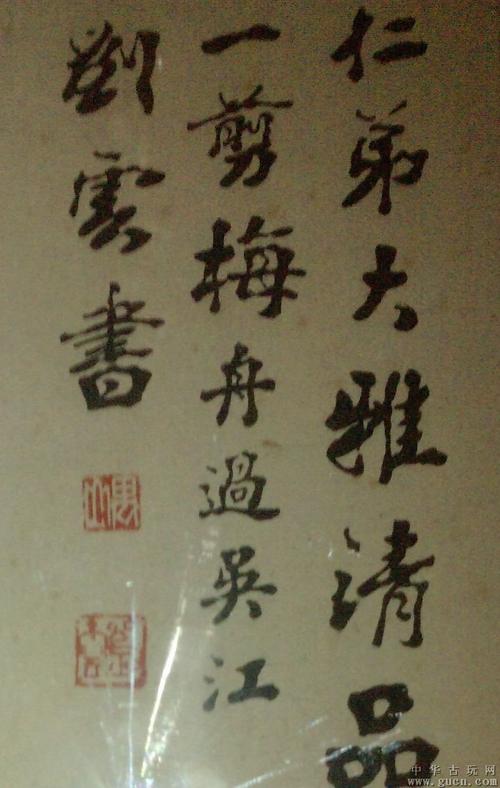 仁弟大雅清品
一剪梅舟過吳江
劉雲書
中华古玩网
www.gucn.com